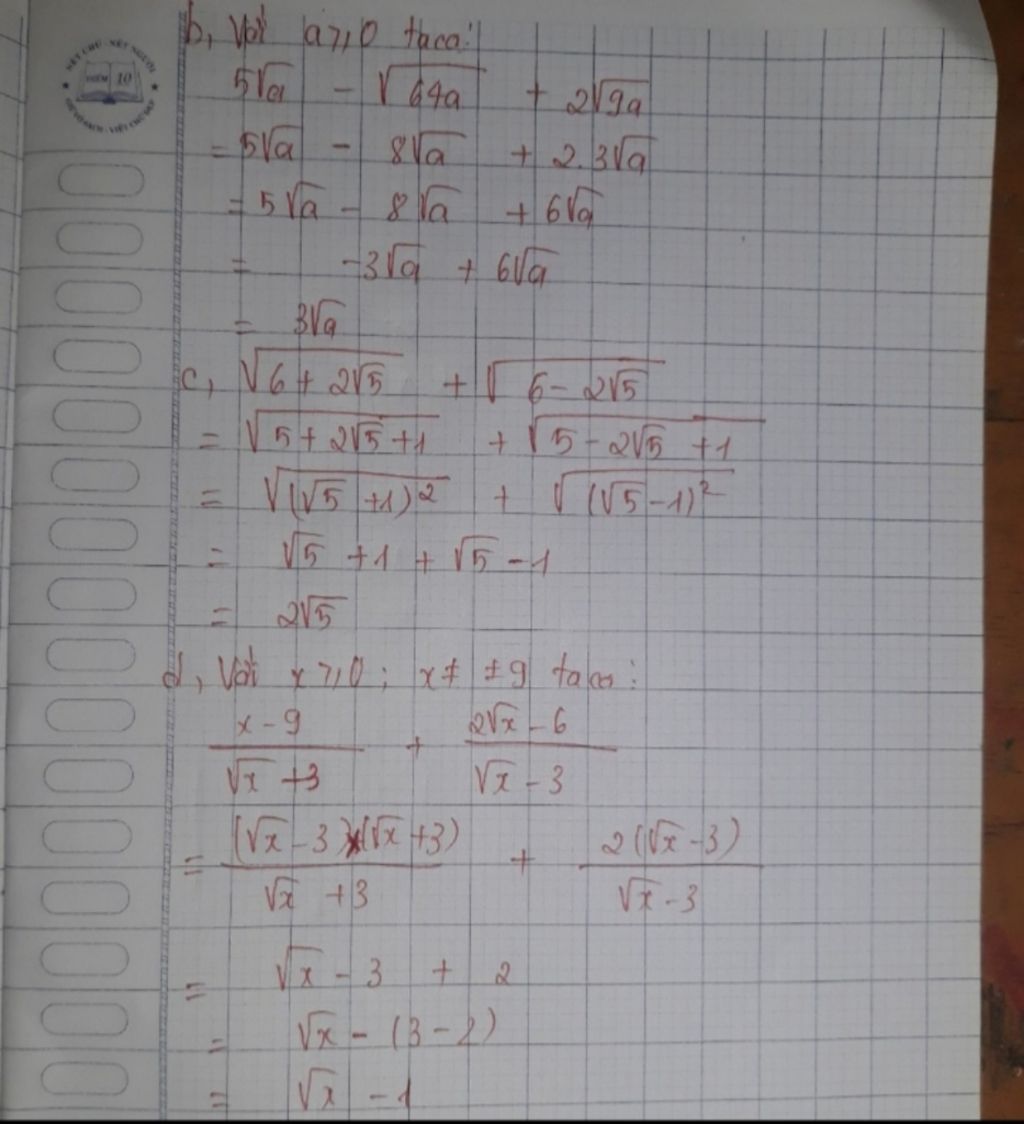 NÉT CHỮ - NẾT NGƯỜI
ĐIỂM 10
b, Với a ⩾ 0 ta có:
5√a - √64a + 2√9a
= 5√a - 8√a + 2.3√a
= 5√a - 8√a + 6√a
= -3√a + 6√a
= 3√a
c, √(6 + 2√5) + √(6 - 2√5)
= √(5 + 2√5 + 1) + √(5 - 2√5 + 1)
= √((√5 + 1)²) + √((√5 - 1)²)
= √5 + 1 + √5 - 1
= 2√5
d, Với x ⩾ 0; x ≠ ±9 ta có:
(x - 9)/(√x + 3) + (2√x - 6)/(√x - 3)
= ((√x - 3)(√x + 3))/(√x + 3) + (2(√x - 3))/(√x - 3)
= √x - 3 + 2
= √x - (3 - 2)
= √x - 1